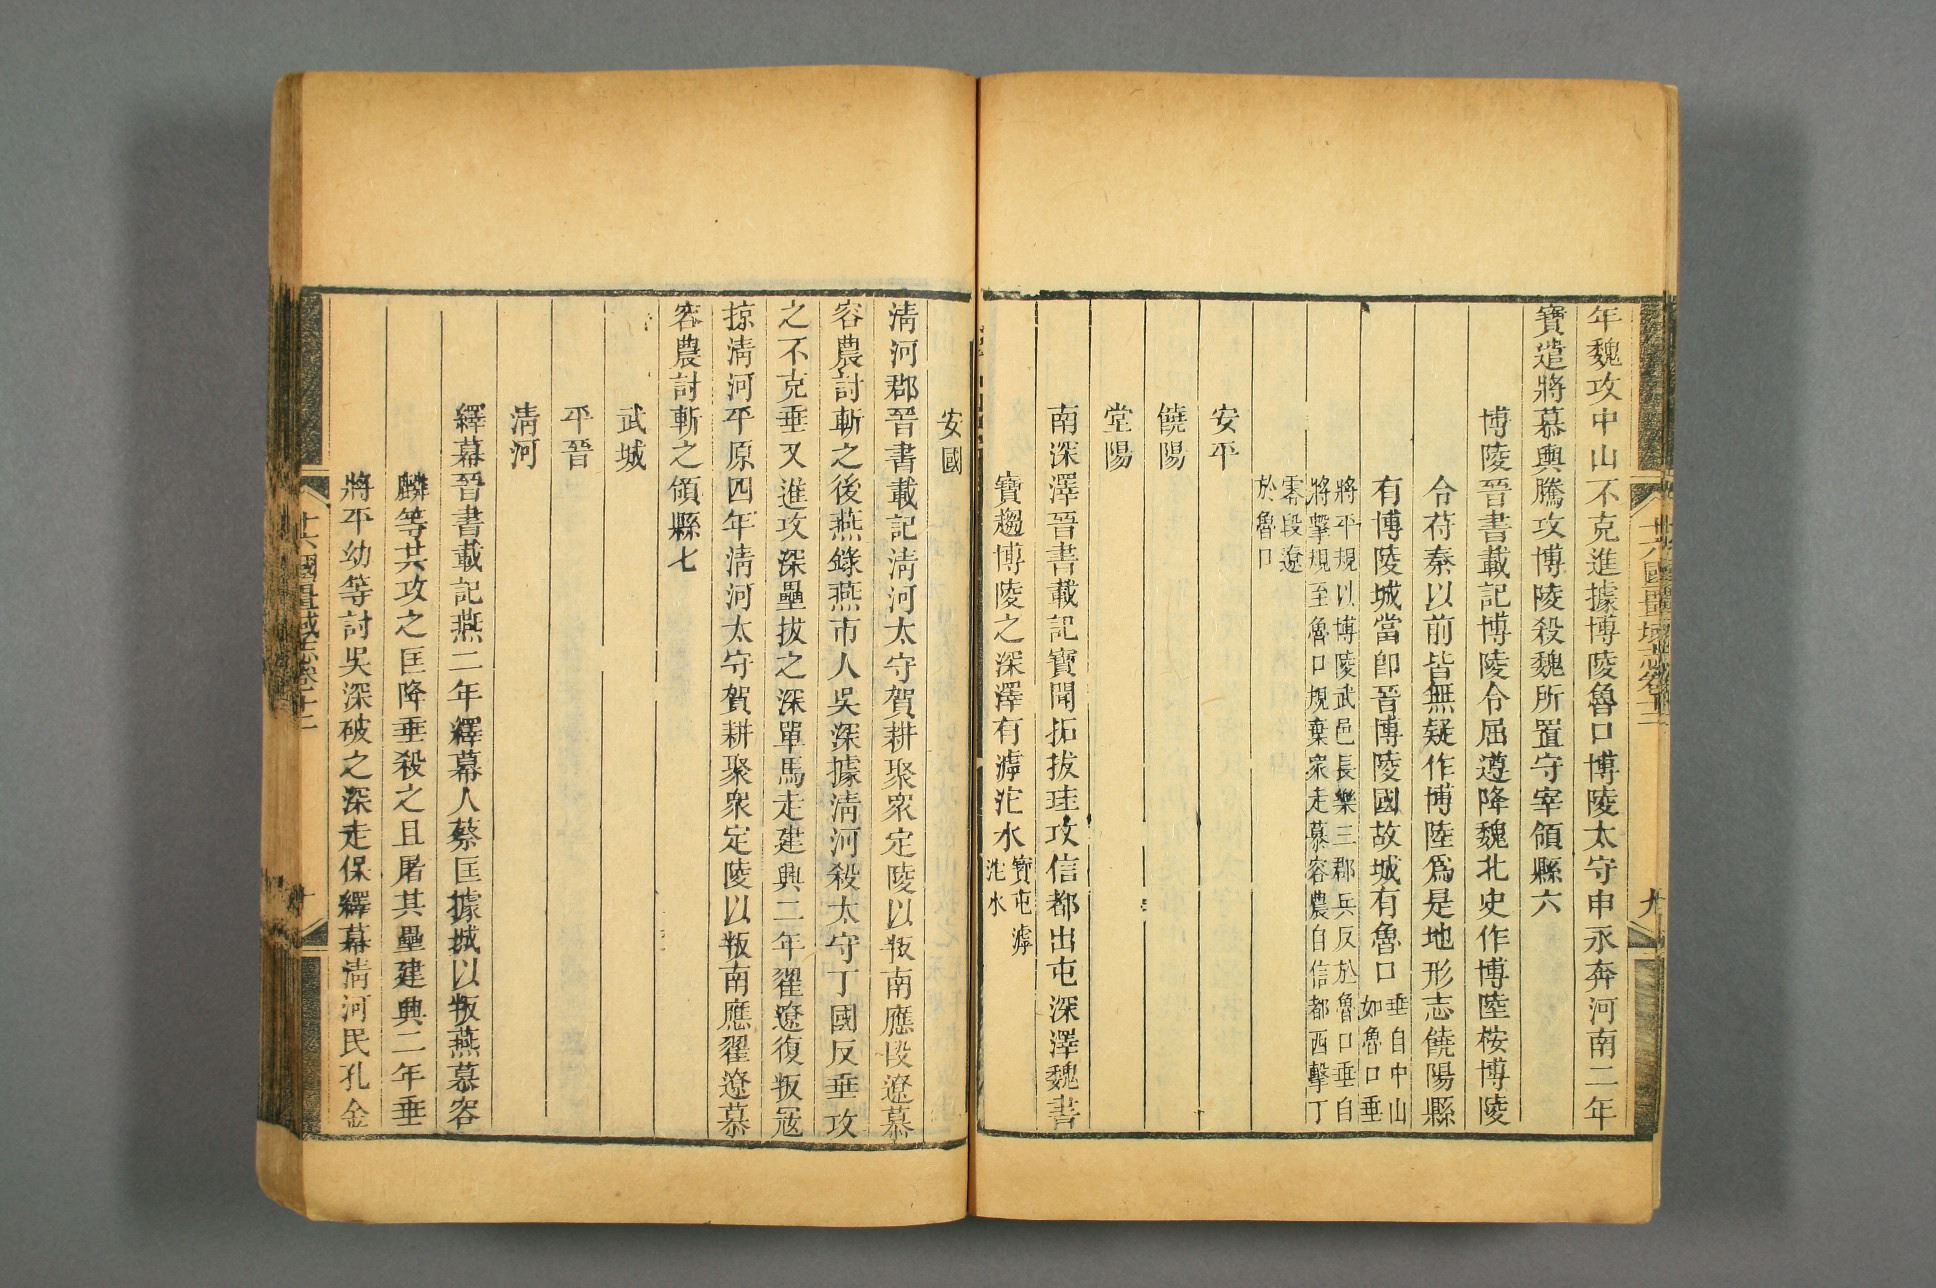 年魏攻中山不克進據博陵魯口博陵太守申永奔河南二年
寶遣將慕輿騰攻博陵殺魏所置守宰領縣六
博陵晉書載記博陵令屈遵降魏北史作博陸桉博陵
令苻秦以前皆無疑作博陸爲是地形志饒陽縣
有博陵城當卽晉博陵國故城有魯口垂自中山
如魯口垂
將平規以博陵武邑長樂三郡兵反於魯口垂自
將擊規至魯口規棄衆走慕容農自信都西擊丁
零段遼
於魯口
安平
饒陽
堂陽
南深澤晉書載記寶聞拓拔珪攻信都出屯深澤魏書
寶趨博陵之深澤有滹沱水寶屯滹
沱水
安國
淸河郡晉書載記淸河太守賀耕聚眾定陵以叛南應段遼慕
容農討斬之後燕錄燕市人吳深據淸河殺太守丁國反垂攻
之不克垂又進攻深壘拔之深單馬走建興二年翟遼復叛寇
掠淸河平原四年淸河太守賀耕聚衆定陵以叛南應翟遼慕
容農討斬之領縣七
武城
平晉
淸河
繹幕晉書載記燕二年繹幕人蔡匡據城以叛燕慕容
麟等共攻之匡降垂殺之且屠其壘建興二年垂
將平幼等討吳深破之深走保繹幕淸河民孔金
十六國疆域志卷十二
九
十六國疆域志卷十二
十